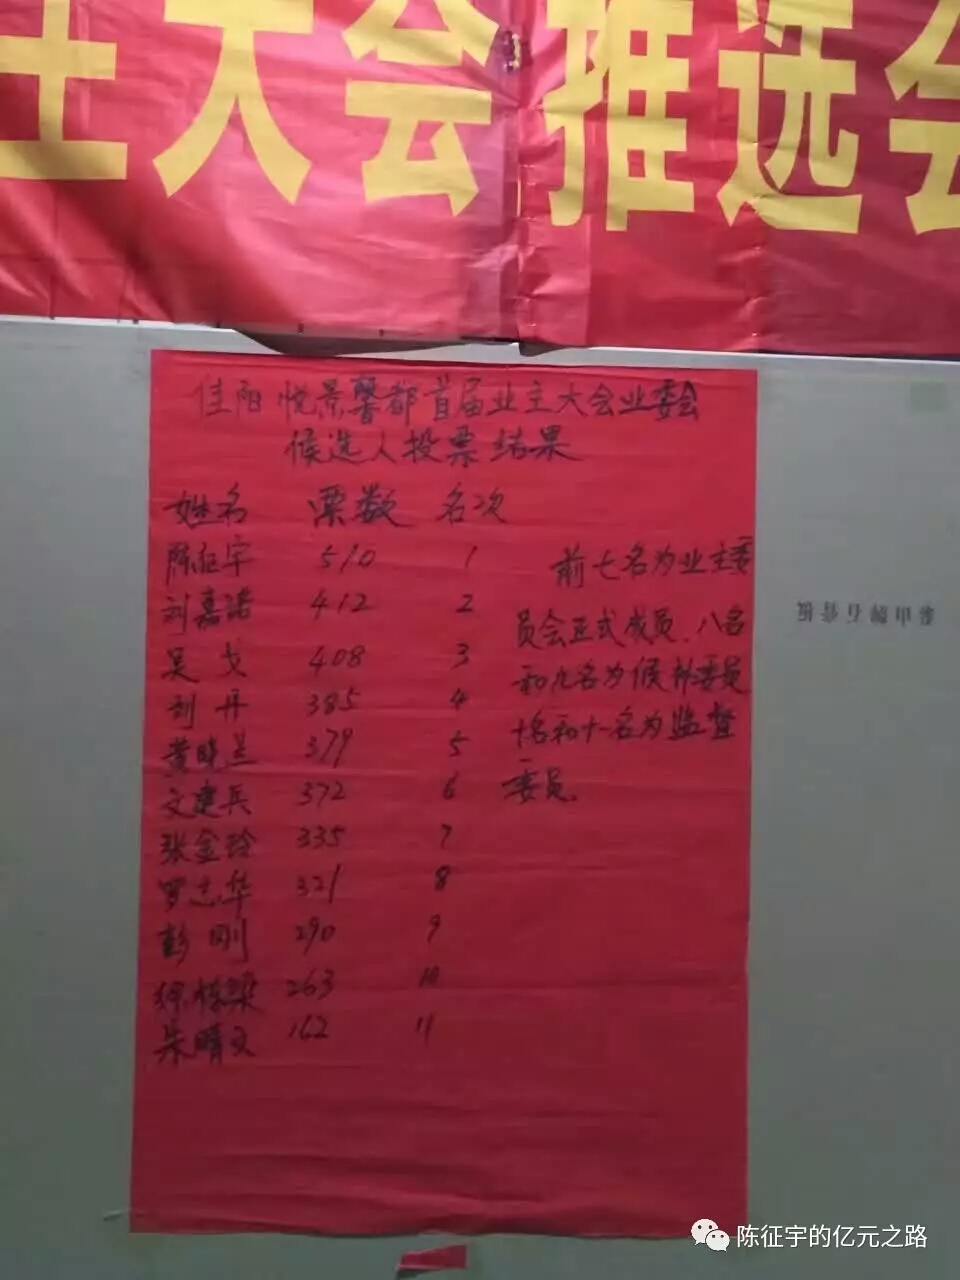 主大会推选会
佳阳悦景馨都首届业主大会业委会
候选人投票结果
姓名 票数 名次
陈征宇 510 1
刘嘉诺 412 2
吴戈 408 3
刘丹 385 4
黄晓兰 379 5
文建兵 372 6
张金玲 335 7
罗志华 321 8
彭刚 290 9
徐栋梁 263 10
朱晴文 162 11
前七名为业主委
员会正式成员、八名
和九名为候补委员
十名和十一名为监督
委员.
陈征宇的亿元之路